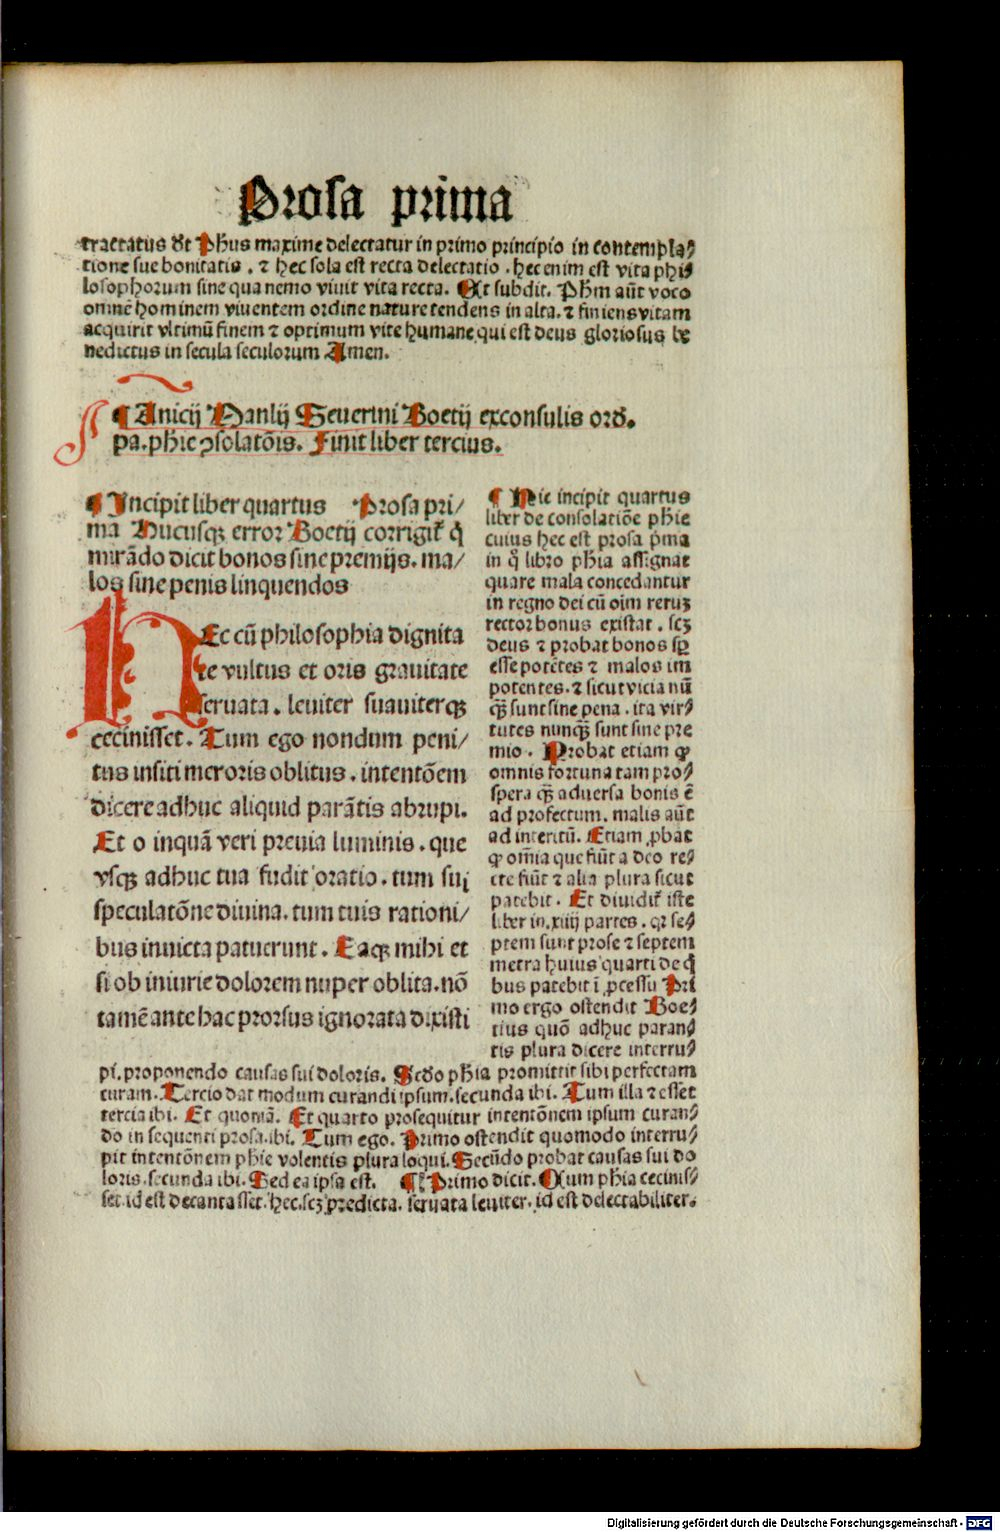 Prosa prima
tractatus & Phus maxime delectatur in primo principio in contempla⸗
tione sue bonitatis . ⁊ hec sola est recta delectatio . hec enim est vita phi⸗
losophorum sine qua nemo viuit vita recta. Et subdit. Phm aūt voco
omnē hominem viuentem ordine nature tendens in alta. ⁊ finiens vitam
acquirit vltimū finem ⁊ optimum vite humane qui est deus gloriosus be
nedictus in secula seculorum Amen.
¶ Anicij Manlij Seuerini Boetij exconsulis ord.
pa. phie ꝯsolatōis. Finit liber tercius.
¶ Incipit liber quartus Prosa pri/
ma Hucusqꝫ error Boetij corrigit̄ q̄
mirādo dicit bonos sine premijs. ma/
los sine penis linquendos
HEc cū philosophia dignita
te vultus et oris grauitate
seruata . leuiter suauiterqꝫ
cecinisset. Tum ego nondum peni/
tus insiti meroris oblitus . intentōem
dicere adhuc aliquid parātis abrupi.
Et o inquā veri preuia luminis . que
vsqꝫ adhuc tua fudit oratio . tum sui
speculatōne diuina. tum tuis rationi/
bus inuicta patuerunt . Eaqꝫ mihi et
si ob iniurie dolorem nuper oblita. nō
tamē ante hac prorsus ignorata dixisti
¶ Hic incipit quartus
liber de consolatiōe phie
cuius hec est prosa p̄ma
in q̄ libro phia assignat
quare mala concedantur
in regno dei cū oim reruꝫ
rector bonus existat . scꝫ
deus ⁊ probat bonos sꝑ
esse potētes ⁊ malos im
potentes. ⁊ sicut vicia nū
qꝫ̄ sunt sine pena . ita vir⸗
tutes nunqꝫ̄ sunt sine pre
mio . Probat etiam ꝙ
omnis fortuna tam pro⸗
spera qꝫ̄ aduersa bonis ē
ad profectum. malis aūt
ad interitū. Etiam ꝓbat
ꝙ om̄ia que fiūt a deo re⸗
cte fiūt ⁊ alia plura sicut
patebit . Et diuidit̄ iste
liber in. xiiij partes . qꝛ se⸗
ptem sunt prose ⁊ septem
metra huius quarti de q̄
bus patebit ī ꝓcessu Pri
mo ergo ostendit Boe⸗
tius quō adhuc paran⸗
tis plura dicere interru⸗
pi. proponendo causas sui doloris. Scdo phia promittit sibi perfectam
curam. Tercio dat modum curandi ipsum. secunda ibi. Tum illa ⁊ esset
tercia ibi. Et quoniā. Et quarto prosequitur intentōnem ipsum curan⸗
do in sequenti prosa. ibi. Tum ego. Primo ostendit quomodo interru⸗
pit intentōnem phie volentis plura loqui. Secūdo probat causas sui do
loris. secunda ibi. Sed ea ipsa est. ¶ Primo dicit. Cum phia cecinis⸗
set. id est decantasset. hec. scꝫ predicta. seruata leuiter. id est delectabiliter.
Digitalisierung gefördert durch die Deutsche Forschungsgemeinschaft - DFG